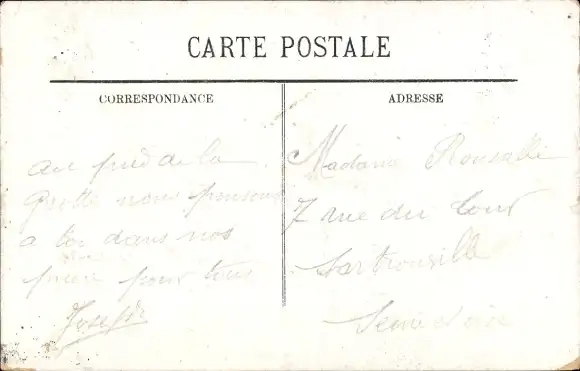 CARTE POSTALE
CORRESPONDANCE
ADRESSE
au pied de la
Grotte nous pensons
a toi dans nos
pour tous
Joseph
Madame
7 rue du
Sartrouville
Seine et oise